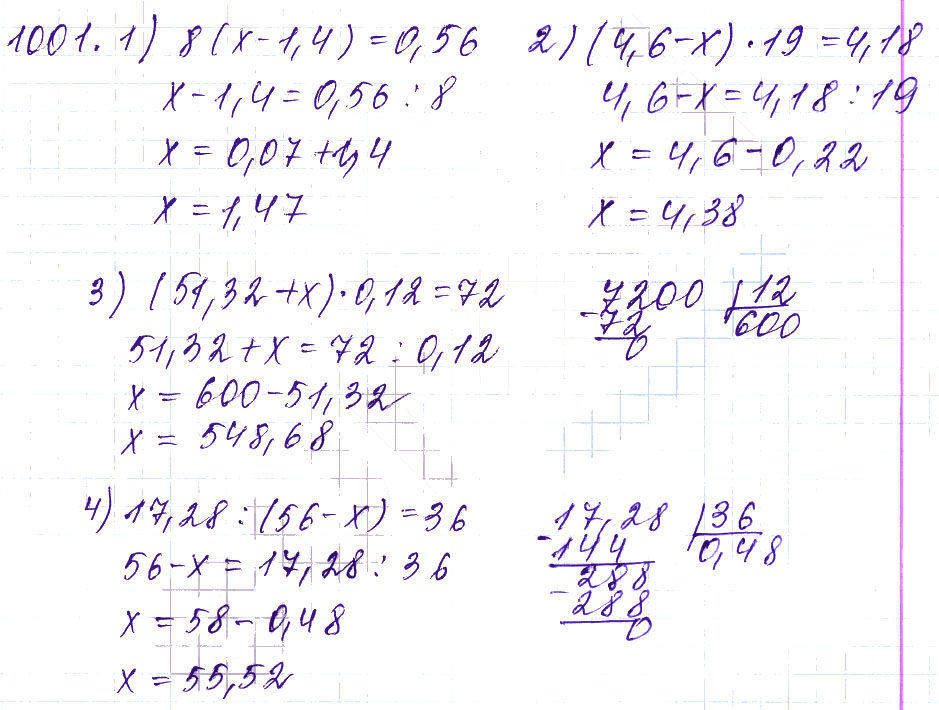 1001. 1) 8(x-1,4)=0,56
x-1,4=0,56:8
x=0,07+1,4
x=1,47
2) (4,6-x)·19=4,18
4,6-x=4,18:19
x=4,6-0,22
x=4,38
3) (51,32+x)·0,12=72
51,32+x=72:0,12
x=600-51,32
x=548,68
7200 12
-72 600
0
4) 17,28:(56-x)=36
56-x=17,28:36
x=58-0,48
x=55,52
-17,28 36
144 0,48
-288
288
0